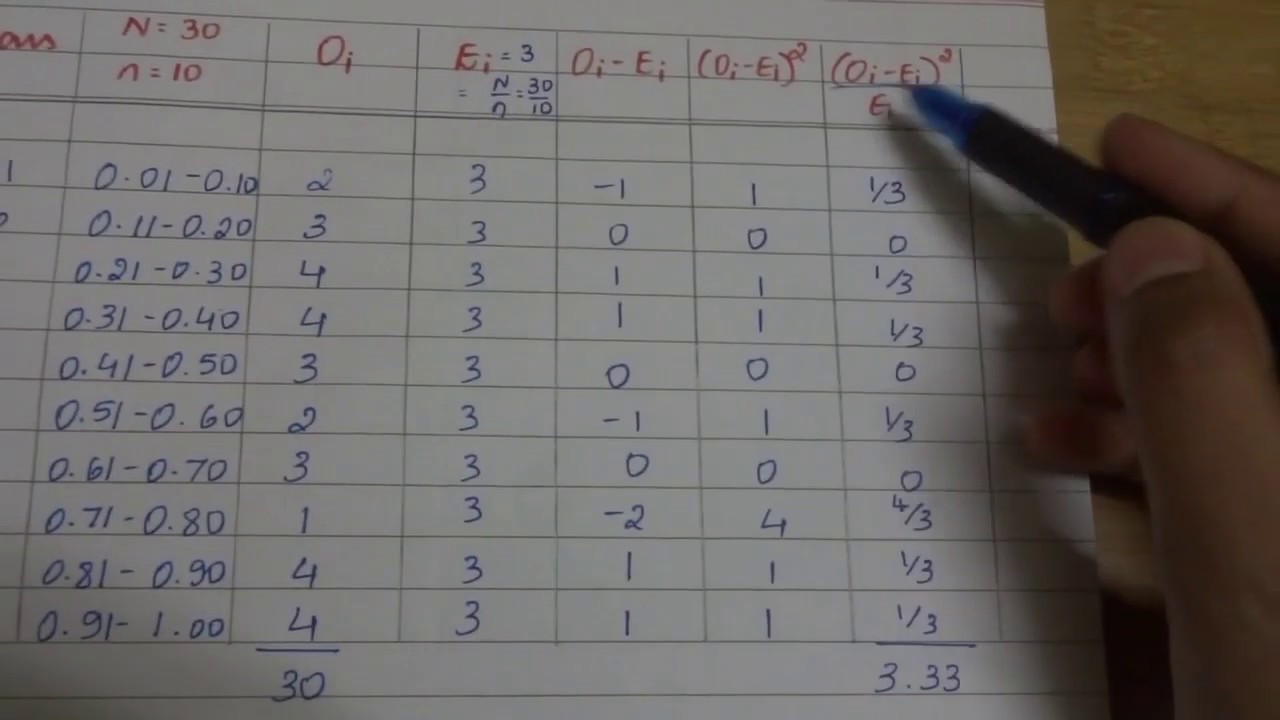 N = 30 Oi Ei = 3 Oi - Ei (Oi-Ei)² (Oi-Ei)²
n = 10 = N/n = 30/10 Ei
1 0.01-0.10 2 3 -1 1 1/3
0.11-0.20 3 3 0 0 0
0.21-0.30 4 3 1 1 1/3
0.31-0.40 4 3 1 1 1/3
0.41-0.50 3 3 0 0 0
0.51-0.60 2 3 -1 1 1/3
0.61-0.70 3 3 0 0 0
0.71-0.80 1 3 -2 4 4/3
0.81-0.90 4 3 1 1 1/3
0.91-1.00 4 3 1 1 1/3
30 3.33